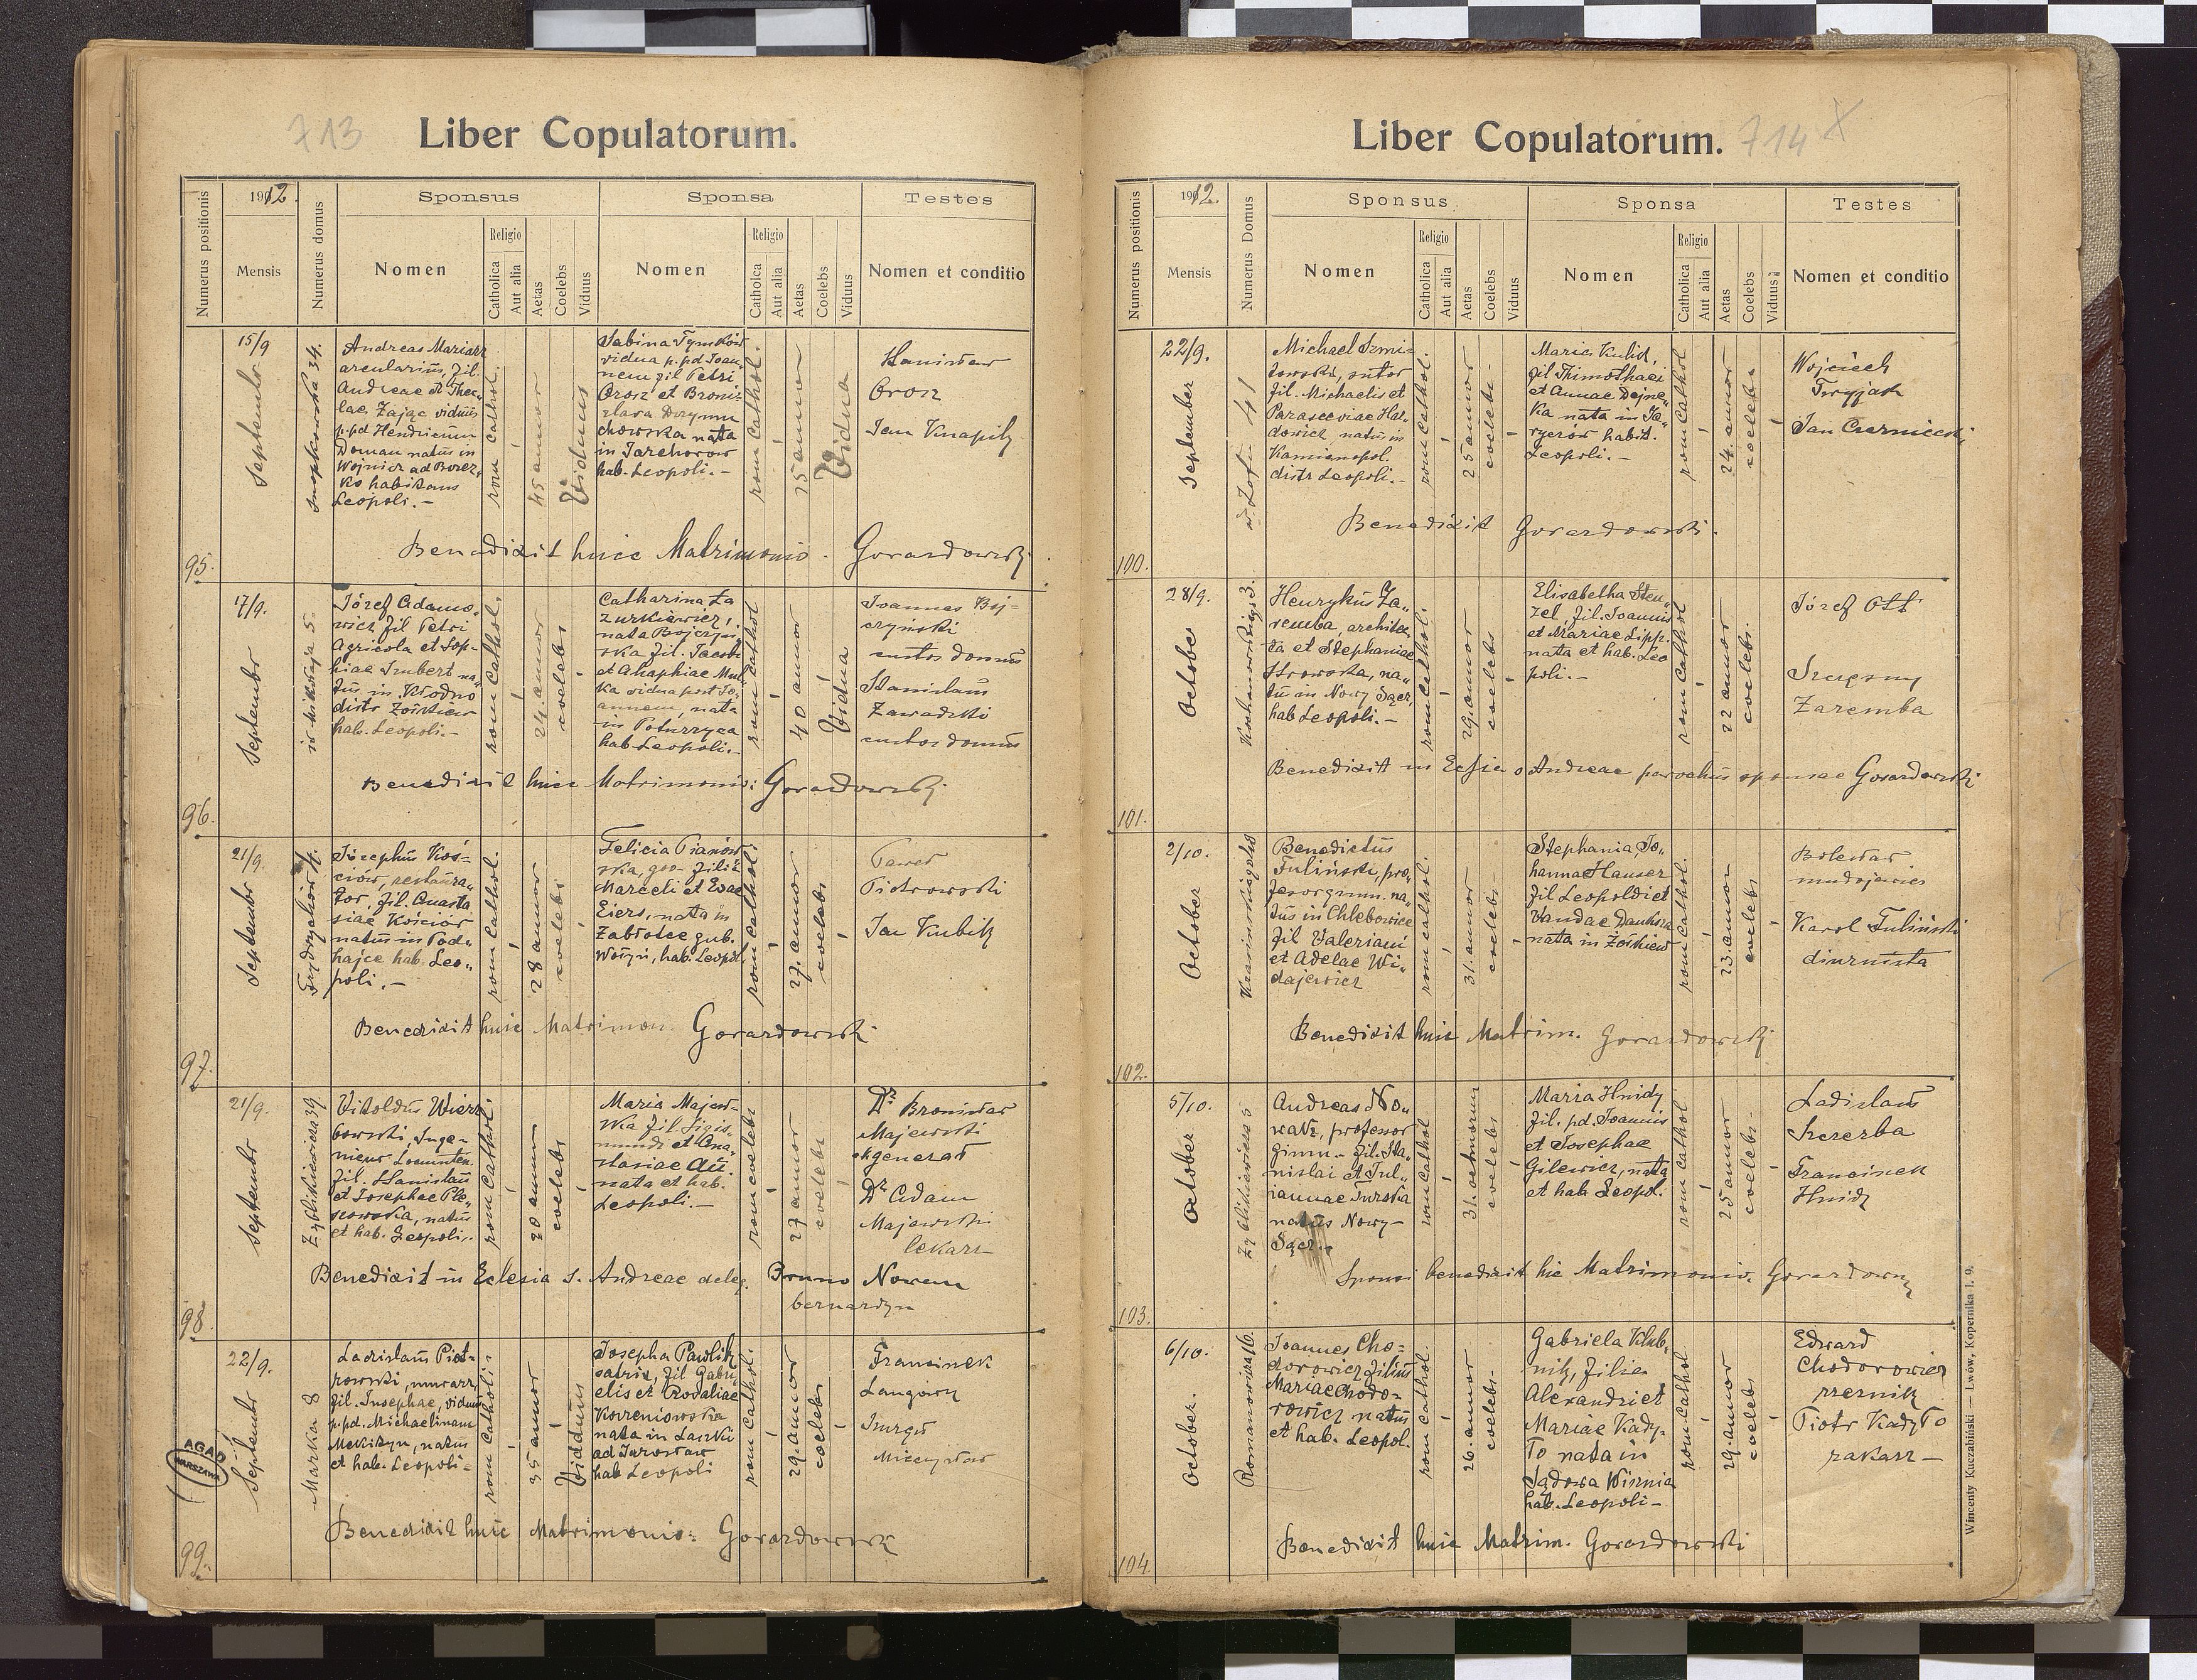 713
Liber Copulatorum.
Numerus positionis
1912.
Mensis
Numerus domus
Sponsus
Nomen
Religio
Catholica
Aut alia
Aetas
Coelebs
Viduus
Sponsa
Nomen
Religio
Catholica
Aut alia
Aetas
Coelebs
Viduus
Testes
Nomen et conditio
95.
15/9
September
34.
Andreas Mariasz
arcularius, fil.
Andreae et Thec„
lae Zając viduus
p. pd Hendricum
Doman natus in
Wojnicz ad
habitans
Leopoli. –
rom cathol.
45 annor
Viduus
Sabina Tymków
vidua p. pd Joan„
nem fil Petri
Orosz et Broni=
slava
chowska nata
in Tarchorow
hab. Leopoli. –
rom cathol.
35 annor
Vidua
Stanisław
Orosz
Jan Knapik
Benedixit huic Matrimonio. Gorazdowski.
96.
17/9.
September
św Mikołaja 5.
Józef Adamo„
wicz fil Petri
Agricola et Sop-
hiae Imbert na„
tus in Kłodno
distr Żółkiew
hab. Leopoli. –
rom cathol.
24. annor
coelebs
Catharina Ła
zurkiewicz,
nata
ska fil. Jacobi
et Ahaphiae
ka vidua post Jo„
annem, nata
in Poturzyca
hab Leopoli. –
rom cathol
40 annor
Vidua
Joannes Boj=
czyński
custos domus
Stanislaus
Zawadzki
custos domus
Benedixit huic Matrimonio: Gorazdowski.
97.
21/9.
September
Frydrychów 4.
Józephus Koś=
ciów, restaura„
tor, fil. Anasta
siae Kościów
natus in Pod„
hajce hab. Leo„
poli. –
rom cathol.
28 annor
coelebs
Felicia Pianow
ska, fil
Marceli et Evae
Eiers, nata in
Zabłotce gub.
Wołyń, hab. Leopol.
rom cathol.
27. annor
coelebs
Paweł
Piotrowski
Jan Kubik
Benedixit huic Matrimon. Gorazdowski.
98.
21/9.
September
Zyblikiewicza 39.
Vitoldus Wierz
bowski, Inge„
nieur
fil. Stanislaus
et Josephae Ple„
szowska, natus
et hab. Leopoli.
rom cathol.
coelebs
Maria Majew=
ska fil. Sigis„
mundi et Ana„
stasiae
nata et hab.
Leopoli. –
27 annor
coelebs
Dr Bronisław
Majewski
Dr Adam
Majewski
lekarz
Benedixit in Eclesia S. Andreae deleg. Bruno Nowem
bernardyn
99.
22/9.
September
Marka 8
Ladislaus Piot=
rowski, murarz,
fil. Josephae, viduus
p. pd. Michaelinam
Mekityn, natus
et hab. Leopoli=
rom cathol:
35 annor
Viduus
Josepha Pawlik
fil Gabri„
elis et Rosaliae
Korzeniowska
nata in Laszki
ad Jarosław
hab Leopoli
rom cathol.
29. annor
coelebs
Franciszek
Langowy
Mieczysław
Benedixit huic Matrimonio: Gorazdowski
AGAD
WARSZAWA
Liber Copulatorum.
714 X
Numerus positionis
1912.
Mensis
Numerus Domus
Sponsus
Nomen
Religio
Catholica
Aut alia
Aetas
Coelebs
Viduus
Sponsa
Nomen
Religio
Catholica
Aut alia
Aetas
Coelebs
Viduus
Testes
Nomen et conditio
100.
22/9.
September
św. Zofii 41
Michael Szmi=
sutor
fil. Michaelis et
Parasceviae Hat„
dowicz, natus in
Kamionopol.
distr Leopoli. –
rom cathol.
25 annor
coelebs –
Maria Kulik,
fil Thimothaei
et Annae Dejne„
ka nata in Ja„
ryczów habit.
Leopoli. –
rom cathol
24. annor
coelebs
Wojciech
Jan Czerniecki
Benedixit Gorazdowski.
101.
28/9.
October
Kochanowskiego 3.
Henrykus Za„
remba, architec„
ta et Stephaniae
na„
tus in Nowy Sącz,
hab Leopoli. –
rom cathol.
29. annor
coelebs
Elisabetha Sten„
zel, fil. Joannis
et Mariae Lipp.
nata et hab. Leo
poli. –
rom cathol
22 annor
coelebs.
Józef Ott
Szczęsny
Zaremba
Benedixit in Eclsia s Andreae parochus sponsae Gorazdowski
102.
2/10.
October
Benedictus
Fuliński, pro„
fesor gymn. na„
tus in Chlebowice
fil Valeriani
et Adelae Wi„
dajewicz
rom cathol.
31. annor
coelebs
Stephania, Jo„
hanna Hauser
fil Leopoldi et
Vandae
nata in Żółkiew
rom cathol.
23. annor
coelebs
Bolesław
Karol Fuliński
diurnista
Benedixit huic Matrim. Gorazdowski
103.
5/10.
October
Zyblikiewicza 5
Andreas No„
wak, professor
gimn. – fil. Sta„
nislai et Jul„
iannae Turska
natus Nowy –
Sącz.
rom cathol
coelebs
Maria Hnidy
fil. pd. Joannis
et Josephae
Gilewicz, nata
et hab Leopol.
rom cathol
25 annor
coelebs –
Ladislaus
Szczerba
Franciszek
Hnidy
benedixit hic Matrimonio. Gorazdowski
104.
6/10.
October.
Romanowicza 16.
Joannes Cho=
dorowicz filius
Mariae Chodo=
rowicz natus
et hab. Leopol.
rom cathol
26. annor
coelebs –
Gabriela Klub„
nik, filia
Alexandri et
Mariae Kady„
ło nata in
Sądowa Wisznia
hab. Leopoli –
rom cathol
29. annor
coelebs
Edward
Chodorowicz
rzeźnik
Piotr Kadyło
Benedixit huic Matrim. Gorazdowski
Wincenty Kuczabiński — Lwów, Kopernika l. 9.